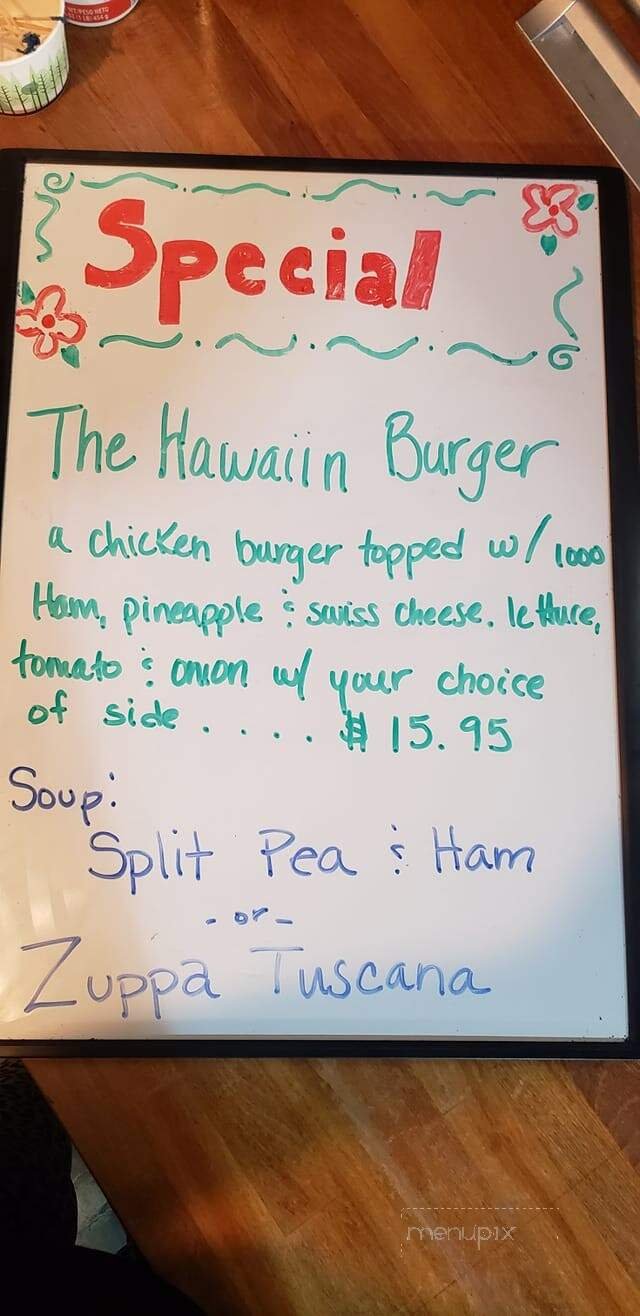 T/PESO NETO
(1 LB) 454 g
Special
The Hawaiin Burger
a chicken burger topped w/ 1000
Ham, pineapple & swiss cheese. lettuce,
tomato & onion w/ your choice
of side . . . . . $ 15.95
Soup:
Split Pea & Ham
- or -
Zuppa Tuscana
menupix